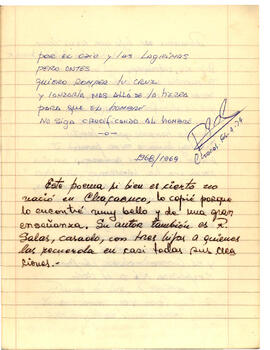 por el odio y las lágrimas
pero antes
quiero romper tu cruz
y lanzarla mas allá de la tierra
para que el hombre
no siga crucificando al hombre
—o—
1968/1969
Este poema si bien es cierto no
nació en Chacabuco, lo copié porque
lo encontré muy bello y de una gran
enseñanza. Su autor también es R.
Salas, casado, con tres hijos a quienes
los recuerda en casi todas sus crea
ciones.-